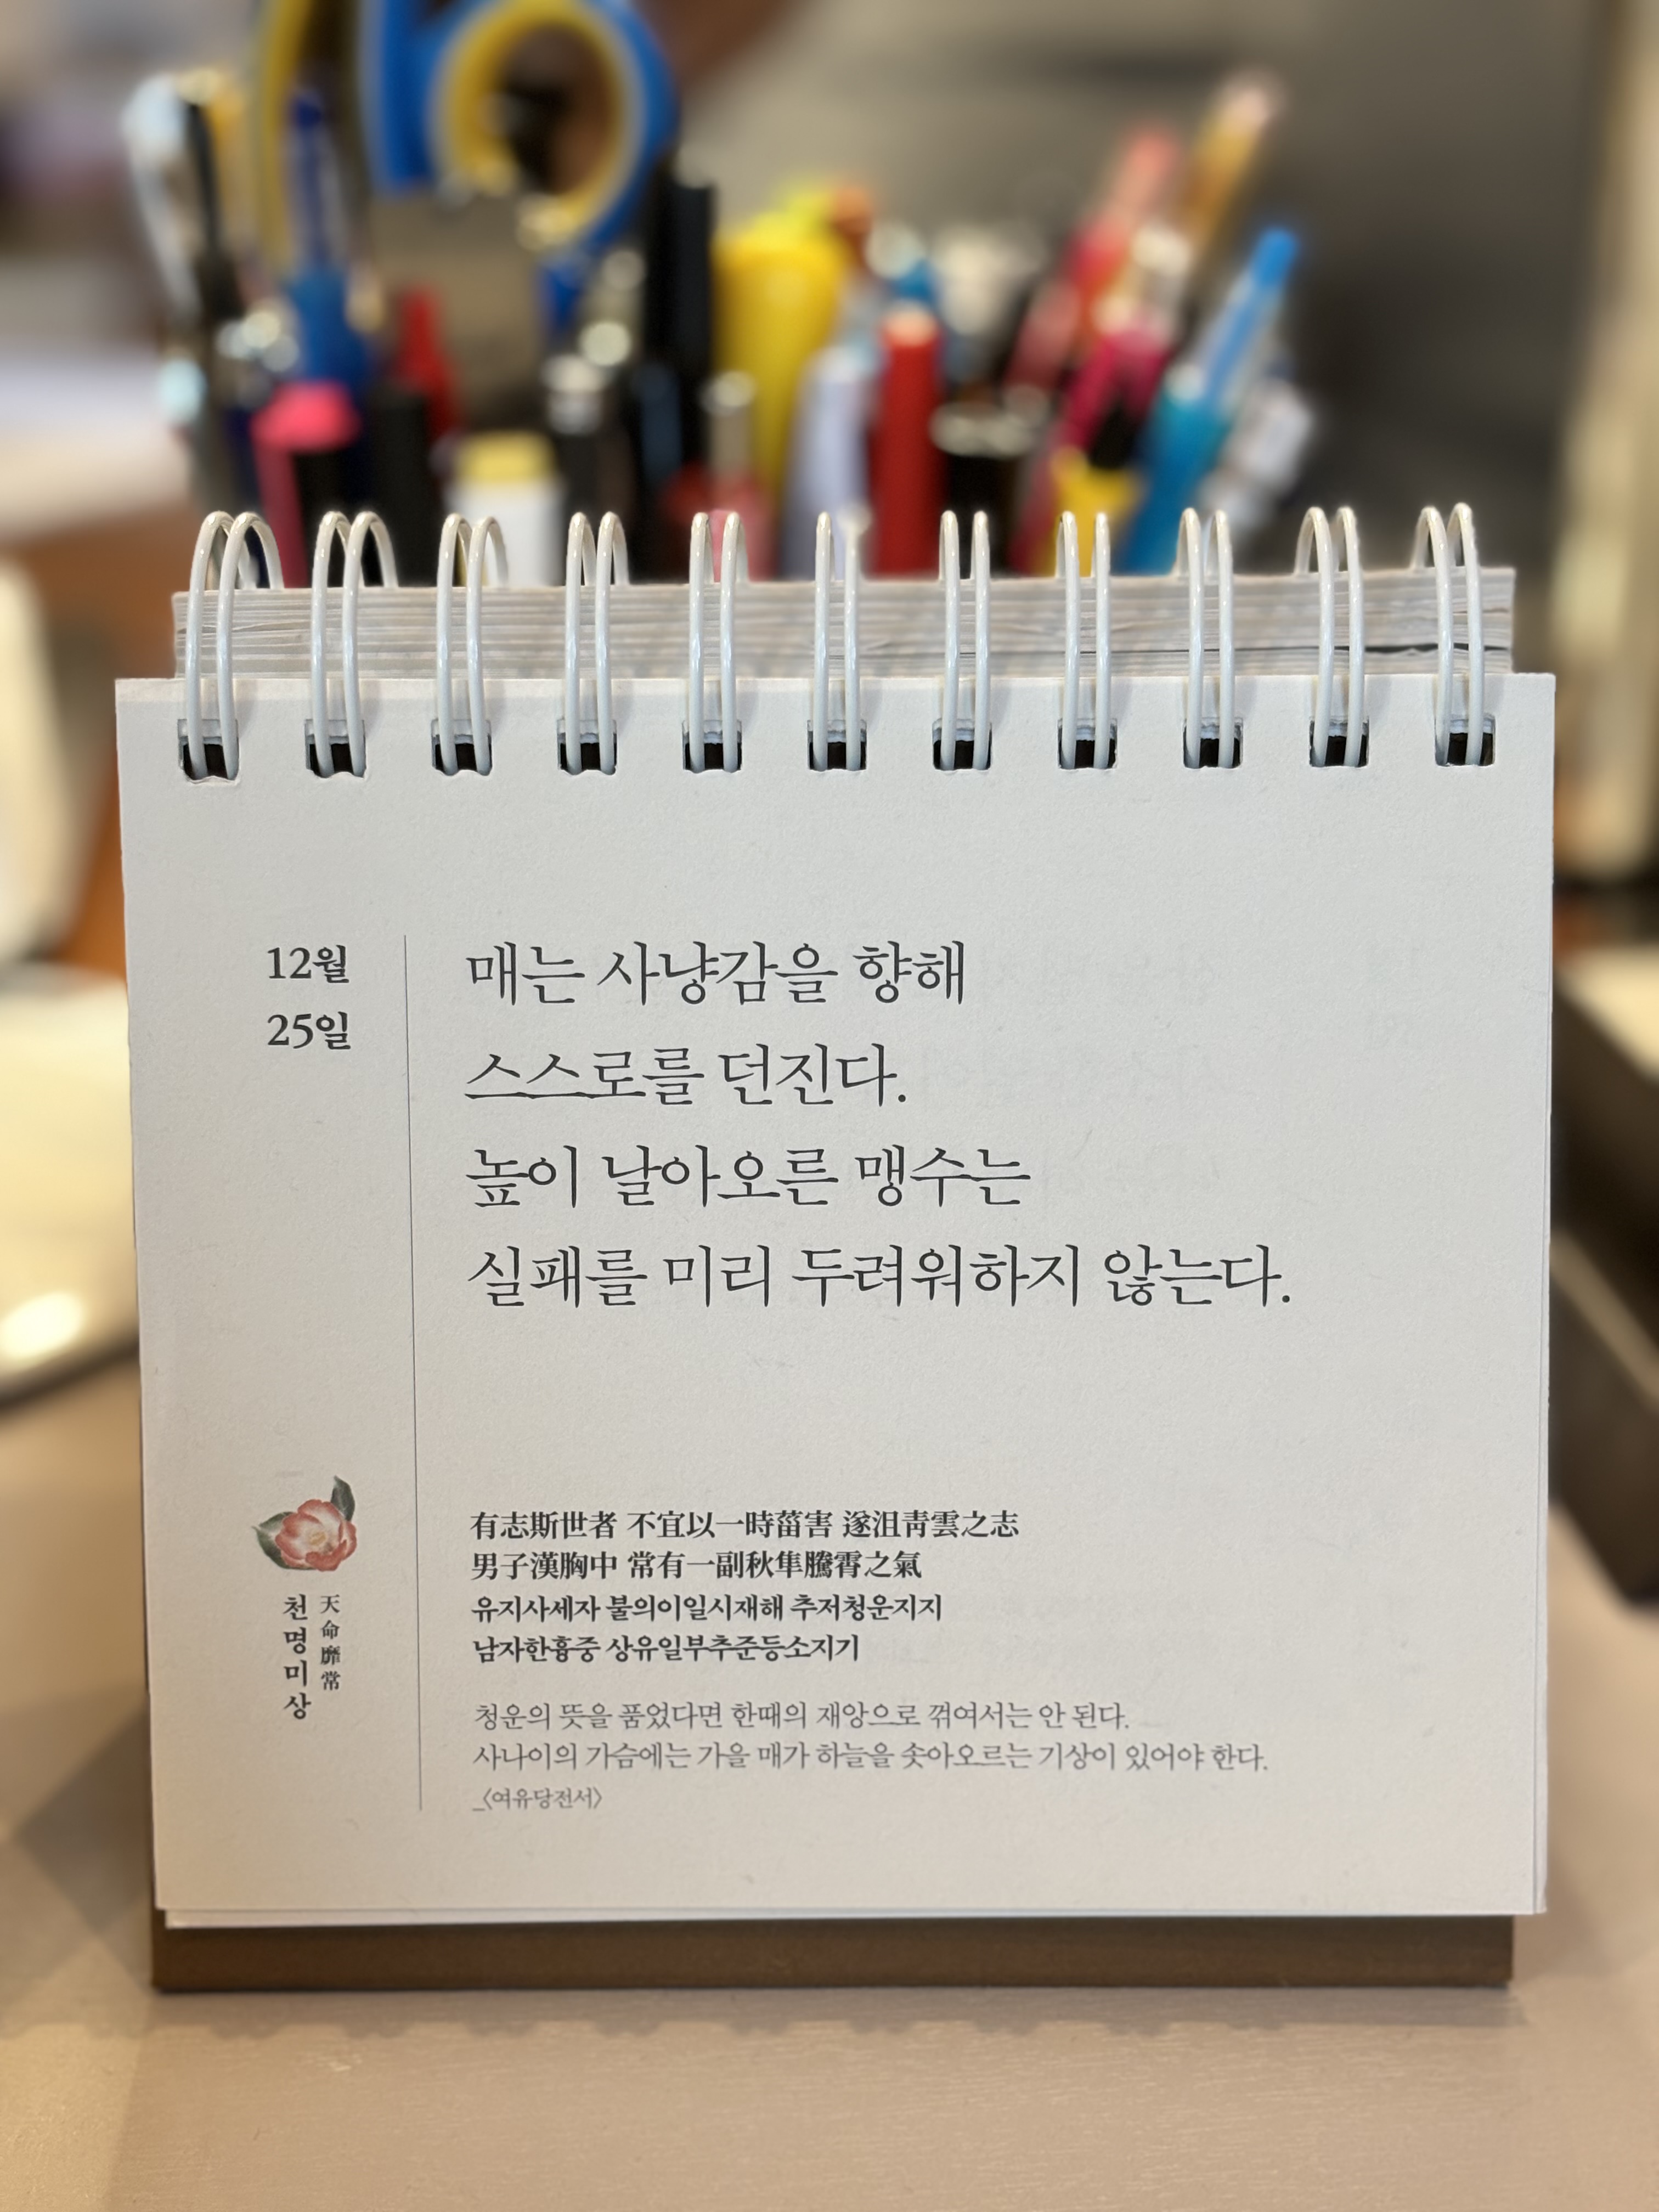 12월
25일
매는 사냥감을 향해
스스로를 던진다.
높이 날아오른 맹수는
실패를 미리 두려워하지 않는다.
有志斯世者 不宜以一時菑害 遂沮靑雲之志
男子漢胸中 常有一副秋隼騰霄之氣
유지사세자 불의이일시재해 추저청운지지
남자한흉중 상유일부추준등소지기
청운의 뜻을 품었다면 한때의 재앙으로 꺾여서는 안 된다.
사나이의 가슴에는 가을 매가 하늘을 솟아오르는 기상이 있어야 한다.
_〈여유당전서〉
天命靡常
천명미상